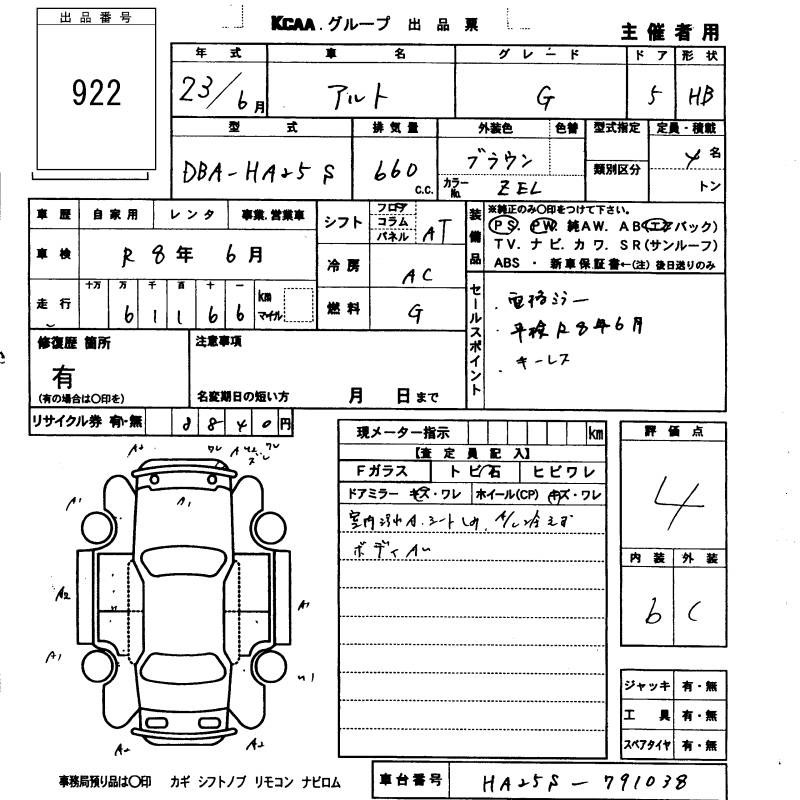 出品番号
KCAA.グループ 出品票
主催者用
922
年式 車名 グレード ドア 形状
23/6月 アルト G 5 HB
型式 排気量 外装色 色替 型式指定 定員・積載
DBA-HA25S 660 c.c. ブラウン 類別区分 4名
カラーNo. ZEL トン
車歴 自家用 レンタ 事業.営業車
シフト フロア コラム パネル AT
装備品 ※純正のみ○印をつけて下さい。
PS. PW. 純AW. AB(エアバック)
TV.ナビ.カワ.SR(サンルーフ)
ABS ・ 新車保証書←(注)後日送りのみ
車検 R8年 6月
冷房 AC
走行 十万 万 千 百 十 一 km マイル
6 1 1 6 6
燃料 G
セールスポイント
・電格ミラー
・平検R8年6月
・キーレス
修復歴 箇所
有
(有の場合は○印を)
注意事項
名変期日の短い方 月 日まで
リサイクル券 有・無 8840円
現メーター指示 km
【査定員記入】
Fガラス トビ石 ヒビワレ
ドアミラー キズ・ワレ ホイール(CP) キズ・ワレ
室内汚れA.シート
ボディAU
評価点
4
内装 外装
b C
A2 ワレ A
A1 A1
A2 A1
A1 1
A2 A2
ジャッキ 有・無
工具 有・無
スペアタイヤ 有・無
事務局預り品は○印 カギ シフトノブ リモコン ナビロム
車台番号 HA25S-791038